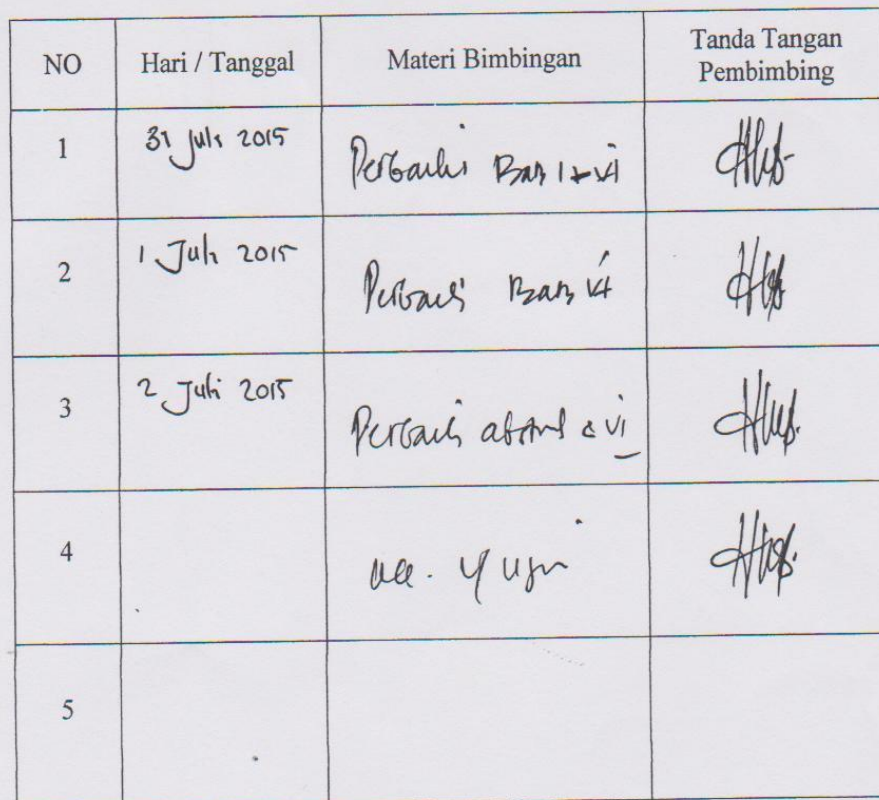 NO Hari / Tanggal Materi Bimbingan Tanda Tangan
Pembimbing
1 31 Juli 2015 Perbaiki Bab I + VI
2 1 Juli 2015 Perbaiki Bab VI
3 2 Juli 2015 Perbaiki & VI
4
5